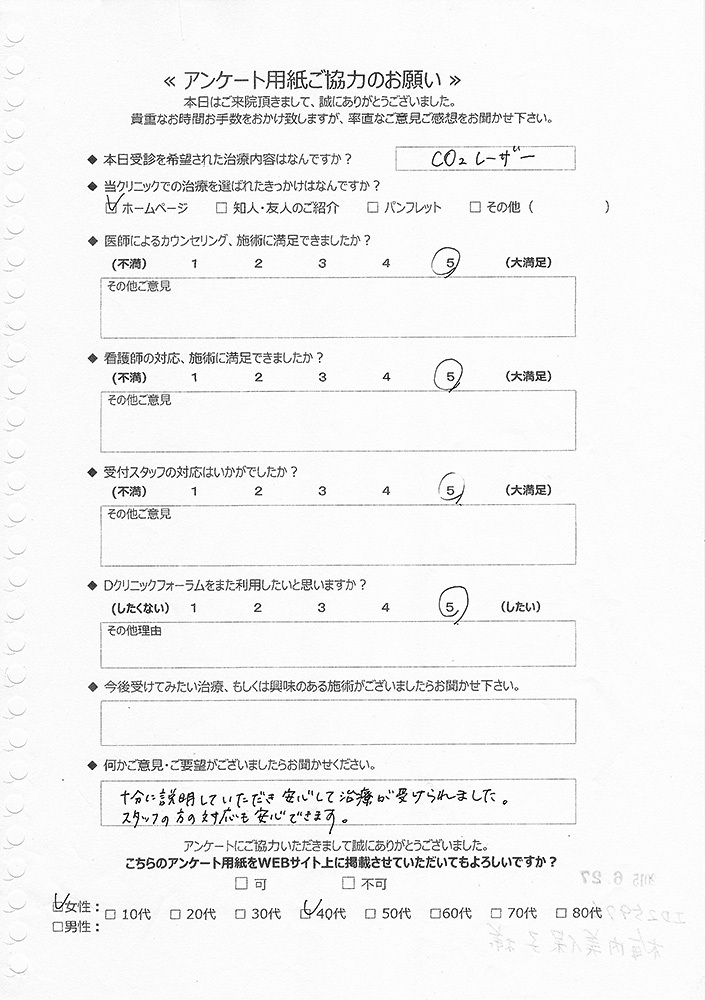 ≪ アンケート用紙ご協力のお願い ≫
本日はご来院頂きまして、誠にありがとうございました。
貴重なお時間お手数をおかけ致しますが、率直なご意見ご感想をお聞かせ下さい。
◆ 本日受診を希望された治療内容はなんですか？ CO2レーザー
◆ 当クリニックでの治療を選ばれたきっかけはなんですか？
☑ ホームページ □ 知人・友人のご紹介 □ パンフレット □ その他（ ）
◆ 医師によるカウンセリング、施術に満足できましたか？
(不満) 1 2 3 4 5 (大満足)
その他ご意見
◆ 看護師の対応、施術に満足できましたか？
(不満) 1 2 3 4 5 (大満足)
その他ご意見
◆ 受付スタッフの対応はいかがでしたか？
(不満) 1 2 3 4 5 (大満足)
その他ご意見
◆ Dクリニックフォーラムをまた利用したいと思いますか？
(したくない) 1 2 3 4 5 (したい)
その他理由
◆ 今後受けてみたい治療、もしくは興味のある施術がございましたらお聞かせ下さい。
◆ 何かご意見・ご要望がございましたらお聞かせください。
十分に説明していただき安心して治療が受けられました。
スタッフの方の対応も安心できます。
アンケートにご協力いただきまして誠にありがとうございました。
こちらのアンケート用紙をWEBサイト上に掲載させていただいてもよろしいですか？
□ 可 □ 不可
☑女性： □ 10代 □ 20代 □ 30代 ☑40代 □ 50代 □60代 □ 70代 □ 80代
□男性：